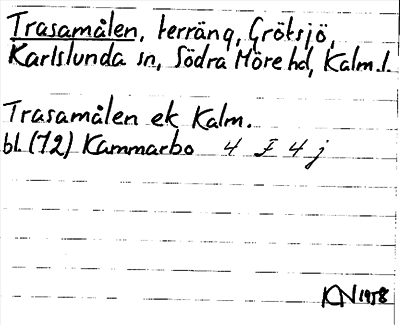 Trasamålen, terräng, Grötsjö,
Karlslunda sn, Södra Möre hd, Kalm.l.
Trasamålen ek Kalm.
bl. (72) Kammarbo 4 F 4 j
KN 1958